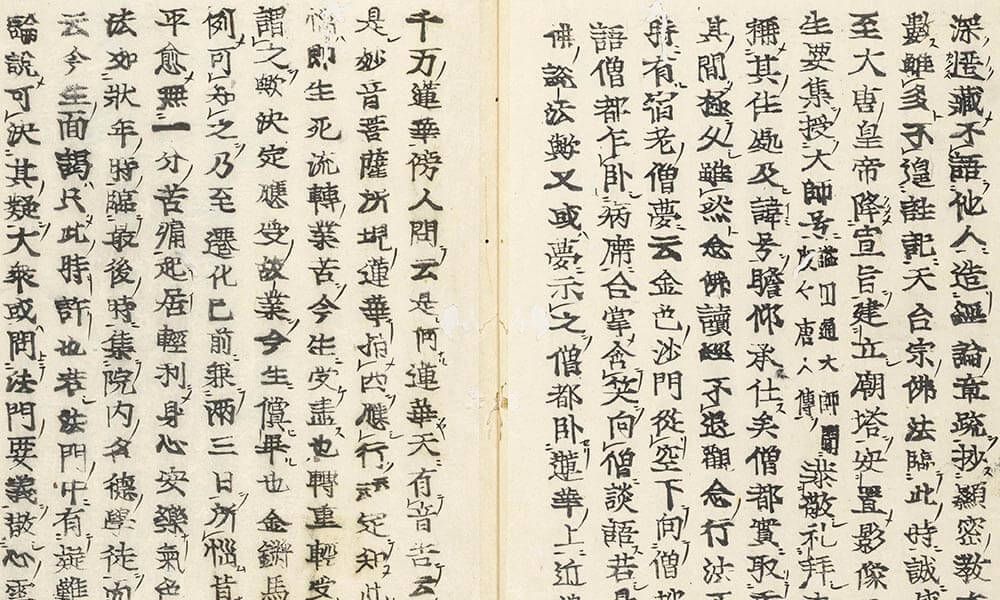 深懐藏不語他人造經論章疏抄顯密教
數雖多不遑註記天台宗佛法臨此時誠
至大唐皇帝降宣旨建立廟塔安置影像
生要集授大師号謚曰通大師聞唐人傳敬礼拜
稱其住處及諱号瞻仰承仕矣僧都實取
其間極久雖然念佛讀經不退觀念行法
時有宿老僧夢云金色沙門從空下向僧
語僧都乍臥病席合掌含笑向僧談語若是
佛說法歟又或夢示之僧都臥蓮華上近
千万蓮華傍人問云是何蓮華天有音告云
是妙音菩薩所現蓮華指西應行云〻定知
惱即生死流轉業苦今生受盡也轉重輕受
謂之歟決定應受故業今生償畢也金鏘馬
例可知之乃至遷化已前兼兩三日所惱昔
平愈無一分苦痛起居輕利身心安樂氣色
法如状年時臨最後時集院内名德學徒而
云今生面謁只此時許也若法門中有疑難
論說可決其疑大衆或問法門要義散心